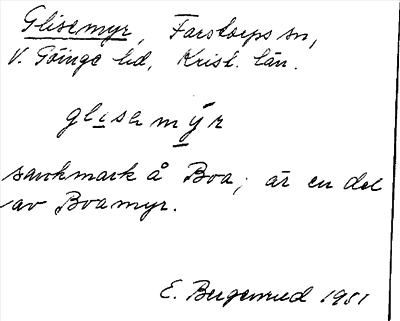 Glisemyr, Farstorps sn,
V. Göinge hd, Krist. län.
glisamy̲r
sankmark å Boa; är en del
av Boamyr.
E. Bergenrud 1951